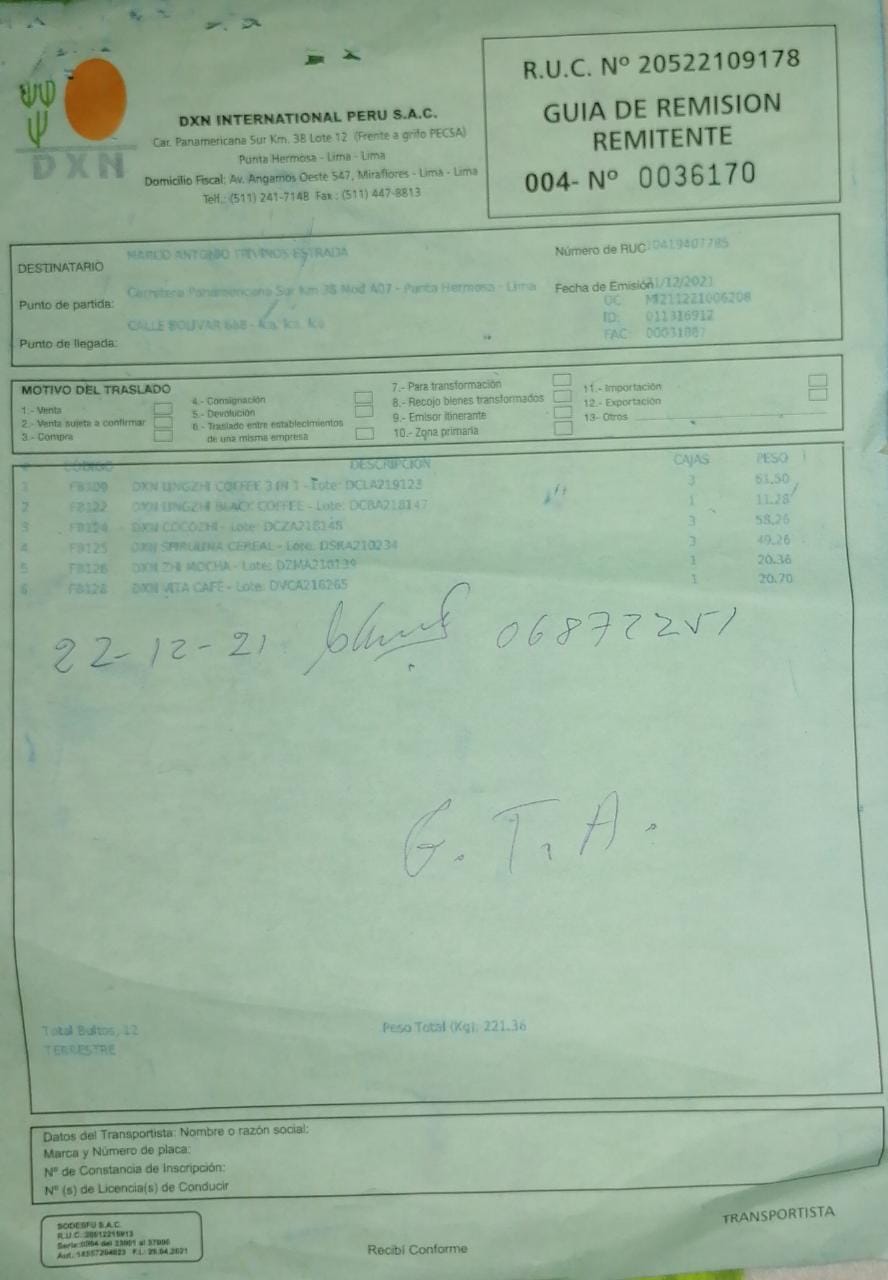 DXN
DXN INTERNATIONAL PERU S.A.C.
Car. Panamericana Sur Km. 38 Lote 12 (Frente a grifo PECSA)
Punta Hermosa - Lima - Lima
Domicilio Fiscal: Av. Angamos Oeste 547, Miraflores - Lima - Lima
Telf.: (511) 241-7148 Fax : (511) 447-8813
R.U.C. Nº 20522109178
GUIA DE REMISION
REMITENTE
004- Nº 0036170
DESTINATARIO MARCO ANTONIO TREVINOS ESTRADA
Número de RUC 10419407785
Punto de partida: Carretera Panamericana Sur Km 38 Mod A07 - Punta Hermosa - Lima
Fecha de Emisión 21/12/2021
OC: MI211221006208
ID: 011316912
FAC: 00031887
Punto de llegada: CALLE BOLIVAR 668 - Ica, Ica, Ica
MOTIVO DEL TRASLADO
1.- Venta
2.- Venta sujeta a confirmar
3.- Compra
4.- Consignación
5.- Devolución
6.- Traslado entre establecimientos
de una misma empresa
7.- Para transformación
8.- Recojo bienes transformados
9.- Emisor itinerante
10.- Zona primaria
11.- Importación
12.- Exportación
13- Otros
# CÓDIGO DESCRIPCION CAJAS PESO
1 FB109 DXN LINGZHI COFFEE 3 IN 1 - Lote: DCLA219123 3 61.50
2 FB122 DXN LINGZHI BLACK COFFEE - Lote: DCBA218147 1 11.28
3 FB124 DXN COCOZHI - Lote: DCZA218148 3 58.26
4 FB125 DXN SPIRULINA CEREAL - Lote: DSRA210234 3 49.26
5 FB126 DXN ZHI MOCHA - Lote: DZMA210139 1 20.36
6 FB128 DXN VITA CAFE - Lote: DVCA216265 1 20.70
22-12-21 06872251
G. T. A.
Total Bultos, 12
Peso Total (Kg): 221.36
TERRESTRE
Datos del Transportista: Nombre o razón social:
Marca y Número de placa:
Nº de Constancia de Inscripción:
Nº (s) de Licencia(s) de Conducir
SODESFU S.A.C.
R.U.C.:20512215913
Serie:0004 del 33001 al 37000
F.I.: 29.04.2021
Recibí Conforme
TRANSPORTISTA